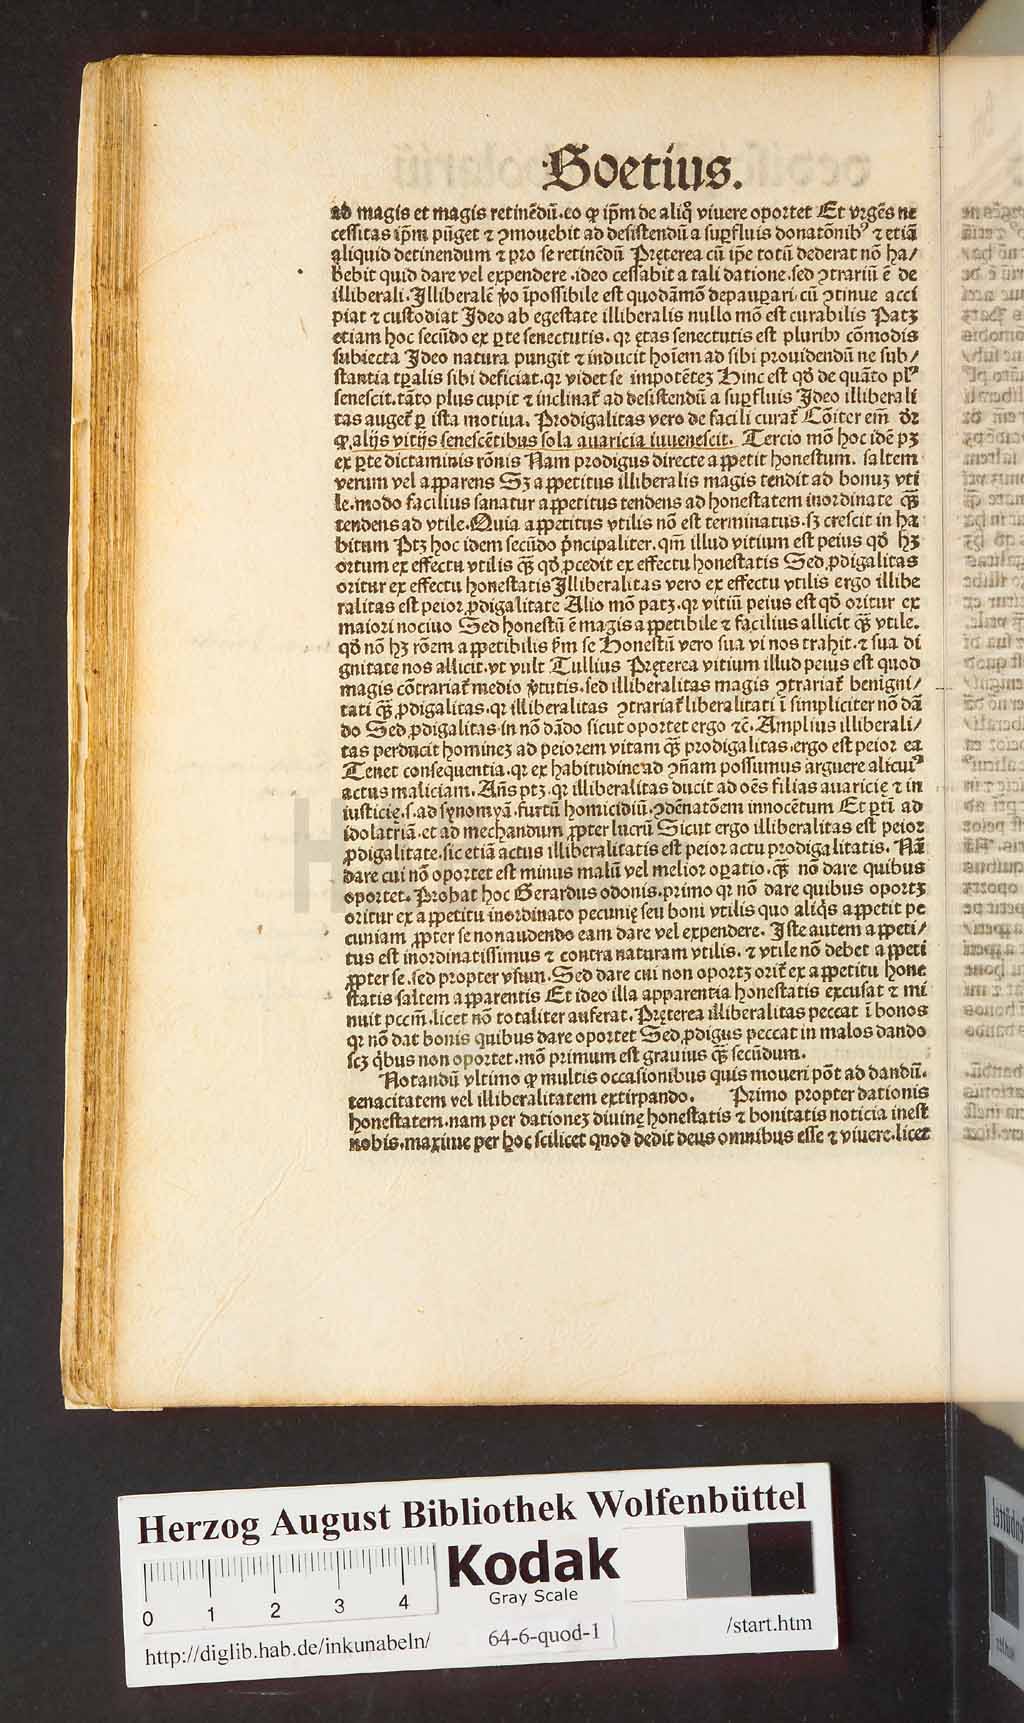 Boetius.
ad magis et magis retinēdū.eo ꝙ ip̄m de aliqͦ viuere oportet Et vrgēs ne
cessitas ip̄m pūget ⁊ ꝯmouebit ad desistendū a suꝑfluis donatōnibꝰ ⁊ etiā
aliquid detinendum ⁊ pro se retinēdū Pręterea cū ip̄e totū dederat nō ha/
bebit quid dare vel expendere .ideo cessabit a tali datione.sed ꝯtrariū ē de
illiberali.Illiberalē ꝟo īpossibile est quodāmō depauꝑari.cū ꝯtinue acci
piat ⁊ custodiat Ideo ab egestate illiberalis nullo mō est curabilis Patꝫ
etiam hoc secūdo ex ꝑte senectutis. qꝛ ętas senectutis est pluribꝫ cōmodis
subiecta Ideo natura pungit ⁊ inducit hoīem ad sibi prouidendū ne sub/
stantia tꝑalis sibi deficiat.qꝛ videt se impotēteꝫ Hinc est qd̄ de quāto plꝰ
senescit.tāto plus cupit ⁊ inclinat᷑ ad desistendū a suꝑfluis Ideo illiberali
tas auget᷑ ꝑ ista motiua. Prodigalitas vero de facili curat᷑ Cōiter em̄ dꝛ
ꝙ alijs vitijs senescētibus sola auaricia iuuenescit. Tercio mō hoc idē pꝫ
ex ꝑte dictaminis rōnis Nam prodigus directe appetit honestum. saltem
verum vel apparens Sꝫ appetitus illiberalis magis tendit ad bonuꝫ vti
le.modo facilius sanatur appetitus tendens ad honestatem inordinate qꝫ̄
tendens ad vtile.Quia appetitus vtilis nō est terminatus.sꝫ crescit in ha
bitum Ptꝫ hoc idem secūdo pͥncipaliter.qm̄ illud vitium est peius qd̄ hꝫ
ortum ex effectu vtilis qꝫ̄ qd̄ ꝓcedit ex effectu honestatis Sed ꝓdigalitas
oritur ex effectu honestatis Illiberalitas vero ex effectu vtilis ergo illibe
ralitas est peior ꝓdigalitate Alio mō patꝫ.qꝛ vitiū peius est qd̄ oritur ex
maiori nociuo Sed honestū ē magis appetibile ⁊ facilius allicit qꝫ̄ vtile.
qd̄ nō hꝫ rōem appetibilis ẜm se Honestū vero sua vi nos trahit.⁊ sua di
gnitate nos allicit.vt vult Tullius Pręterea vitium illud peius est quod
magis cōtrariat᷑ medio ꝟtutis.sed illiberalitas magis ꝯtrariat᷑ benigni/
tati qꝫ̄ ꝓdigalitas.qꝛ illiberalitas ꝯtrariat᷑ liberalitati ī simpliciter nō dā
do Sed ꝓdigalitas in nō dādo sicut oportet ergo ⁊c̄. Amplius illiberali/
tas perducit homineꝫ ad peiorem vitam qꝫ̄ prodigalitas.ergo est peior ea
Tenet consequentia.qꝛ ex habitudine ad ꝯn̄am possumus arguere alicuiꝰ
actus maliciam. An̄s ptꝫ.qꝛ illiberalitas ducit ad oēs filias auaricię ⁊ in
iusticię.s.ad symomyā.furtū homicidiū.ꝯdēnatōem innocētum Et ꝑti ad
idolatriā.et ad mechandum ꝓpter lucrū Sicut ergo illiberalitas est peior
ꝓdigalitate.sic etiā actus illiberalitatis est peior actu prodigalitatis. Nā
dare cui nō oportet est minus malū vel melior oꝑatio.qꝫ̄ nō dare quibus
oportet. Probat hoc Gerardus odonis.primo qꝛ nō dare quibus oportꝫ
oritur ex appetitu inordinato pecunię seu boni vtilis quo aliqͥs appetit pe
cuniam ꝓpter se non audendo eam dare vel expendere. Iste autem appeti/
tus est inordinatissimus ⁊ contra naturam vtilis. ⁊ vtile nō debet appeti
ꝓpter se.sed propter vsum.Sed dare cui non oportꝫ orit᷑ ex appetitu hone
statis saltem apparentis Et ideo illa apparentia honestatis excusat ⁊ mi
nuit pccm̄.licet nō totaliter auferat. Pręterea illiberalitas peccat ī bonos
qꝛ nō dat bonis quibus dare oportet Sed ꝓdigus peccat in malos dando
scꝫ qͥbus non oportet.mō primum est grauius qꝫ̄ secūdum.
Notandū vltimo ꝙ multis occasionibus quis moueri pōt ad dandū.
tenacitatem vel illiberalitatem extirpando. Primo propter dationis
honestatem.nam per dationeꝫ diuinę honestatis ⁊ bonitatis noticia inest
nobis.maxime per hoc scilicet quod dedit deus omnibus esse ⁊ viuere.licet
Herzog August Bibliothek Wolfenbüttel
Kodak
Gray Scale
0 1 2 3 4
http://diglib.hab.de/inkunabeln/ 64-6-quod-1 /start.htm